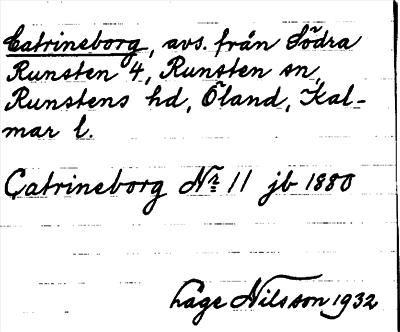 Catrineborg, avs. från Södra
Runsten 4, Runsten sn,
Runstens hd, Öland, Kal-
mar l.
Catrineborg Nr 11 jb 1880
Lage Nilsson 1932